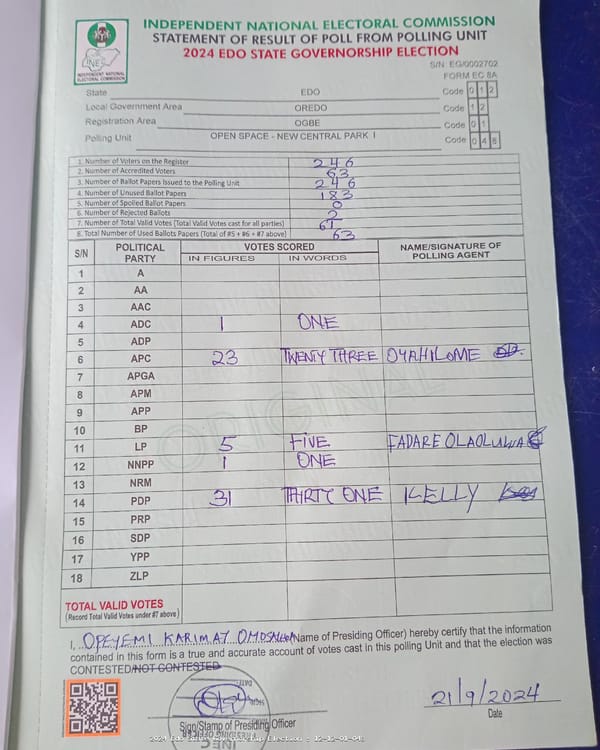 INDEPENDENT NATIONAL ELECTORAL COMMISSION
STATEMENT OF RESULT OF POLL FROM POLLING UNIT
2024 EDO STATE GOVERNORSHIP ELECTION
INEC
INDEPENDENT NATIONAL ELECTORAL COMMISSION
S/N EG/0002702
FORM EC 8A
State EDO Code 0 1 2
Local Government Area OREDO Code 1 2
Registration Area OGBE Code 0 1
Polling Unit OPEN SPACE - NEW CENTRAL PARK I Code 0 4 8
1. Number of Voters on the Register 246
2. Number of Accredited Voters 63
3. Number of Ballot Papers Issued to the Polling Unit 246
4. Number of Unused Ballot Papers 183
5. Number of Spoiled Ballot Papers 0
6. Number of Rejected Ballots 2
7. Number of Total Valid Votes (Total Valid Votes cast for all parties) 61
8. Total Number of Used Ballots Papers (Total of #5 + #6 + #7 above) 63
S/N POLITICAL PARTY VOTES SCORED NAME/SIGNATURE OF POLLING AGENT
IN FIGURES IN WORDS
1 A
2 AA
3 AAC
4 ADC 1 ONE
5 ADP
6 APC 23 TWENTY THREE OYAHILOME
7 APGA
8 APM
9 APP
10 BP
11 LP 5 FIVE FADARE OLAOLUWA
12 NNPP 1 ONE
13 NRM
14 PDP 31 THIRTY ONE KELLY
15 PRP
16 SDP
17 YPP
18 ZLP
ORIGINAL
TOTAL VALID VOTES
(Record Total Valid Votes under #7 above)
I, OPEYEMI KARIMAT (Name of Presiding Officer) hereby certify that the information
contained in this form is a true and accurate account of votes cast in this polling Unit and that the election was
CONTESTED/NOT CONTESTED
DATE
SIGN
Sign/Stamp of Presiding Officer
PRESIDING OFFICER
INEC
21/9/2024
Date
2024 Edo State Governorship Election - 12-12-01-048